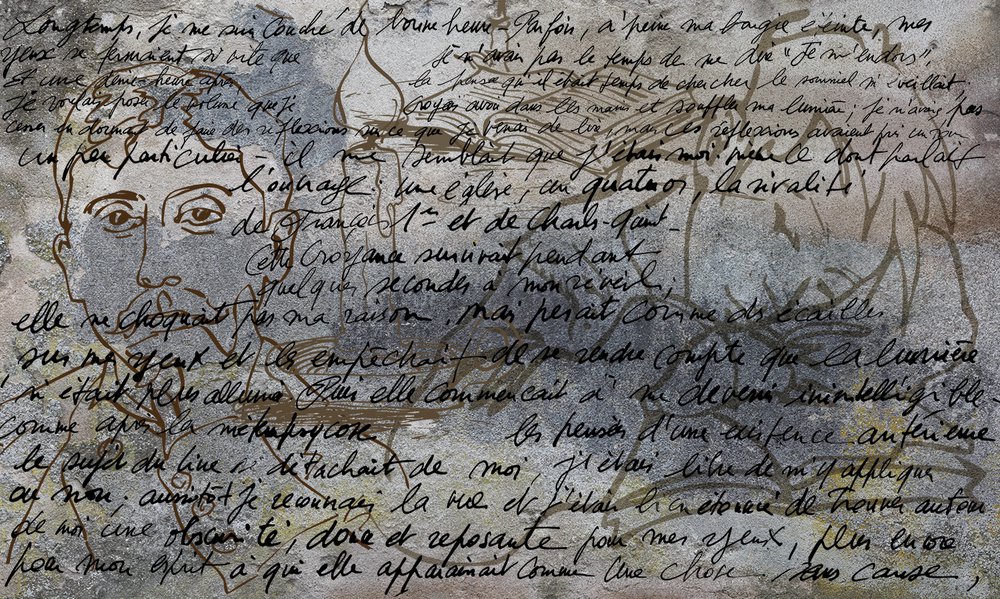 Longtemps, je me suis couché de bonne heure. Parfois, à peine ma bougie éteinte, mes
yeux se fermaient si vite que je n'avais pas le temps de me dire "Je m'endors",
Et une demi-heure après la pensée qu'il était temps de chercher le sommeil m'éveillait;
Je voulais poser le volume que je croyais avoir dans les mains et souffler ma lumière; je n'avais pas
cessé en dormant de faire des réflexions sur ce que je venais de lire, mais ces réflexions avaient pris un tour
un peu particulier - il me semblait que j'étais moi-même ce dont parlait
l'ouvrage: une église, un quatuor, la rivalité
de François 1er et de Charles-quint -
Cette croyance survivait pendant
quelques secondes à mon réveil;
elle ne choquait pas ma raison, mais pesait comme des écailles
sur mes yeux et les empêchait de se rendre compte que la lumière
n'était plus allumée. Puis elle commençait à me devenir inintelligible -
comme après la métempsycose les pensées d'une existence antérieure
le sujet du livre se détachait de moi, j'étais libre de m'y appliquer
ou non; aussitôt je recouvrais la vue et j'étais bien étonné de trouver autour
de moi une obscurité, douce et reposante pour mes yeux, plus encore
pour mon esprit à qui elle apparaissait comme une chose sans cause,